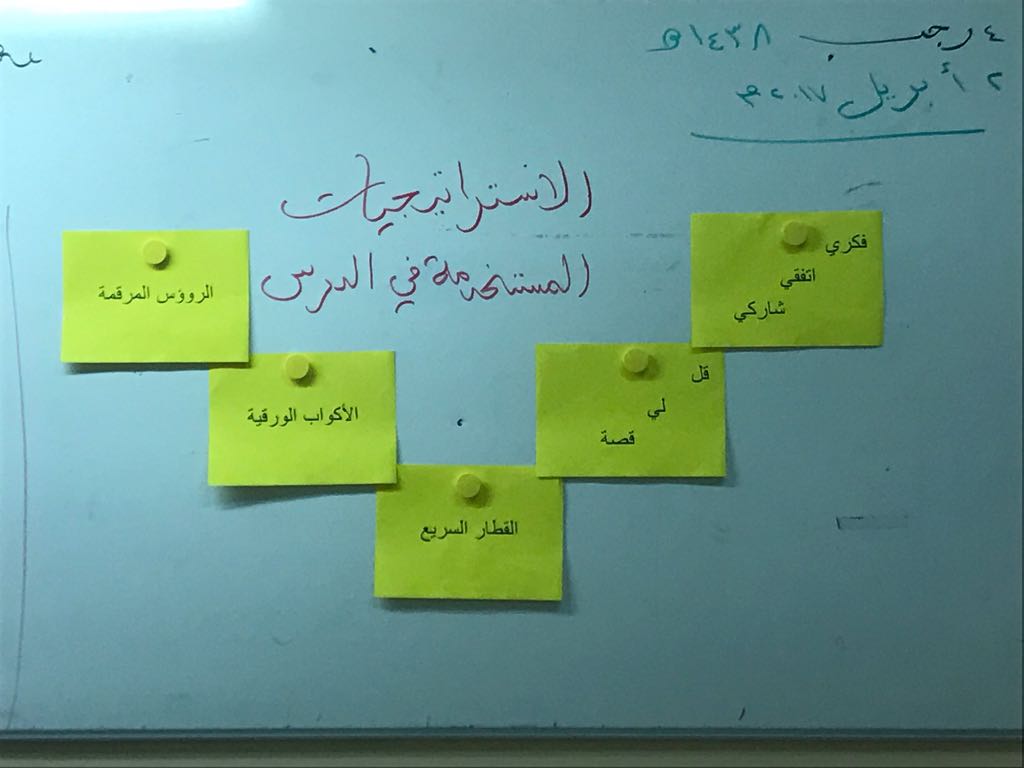 ٤ رجب ١٤٣٨هـ
٢ أبريل ٢٠١٧م
الاستراتيجيات
المستخدمة في الدرس
فكري
اتفقي
شاركي
قل
لي
قصة
القطار السريع
الأكواب الورقية
الرووس المرقمة